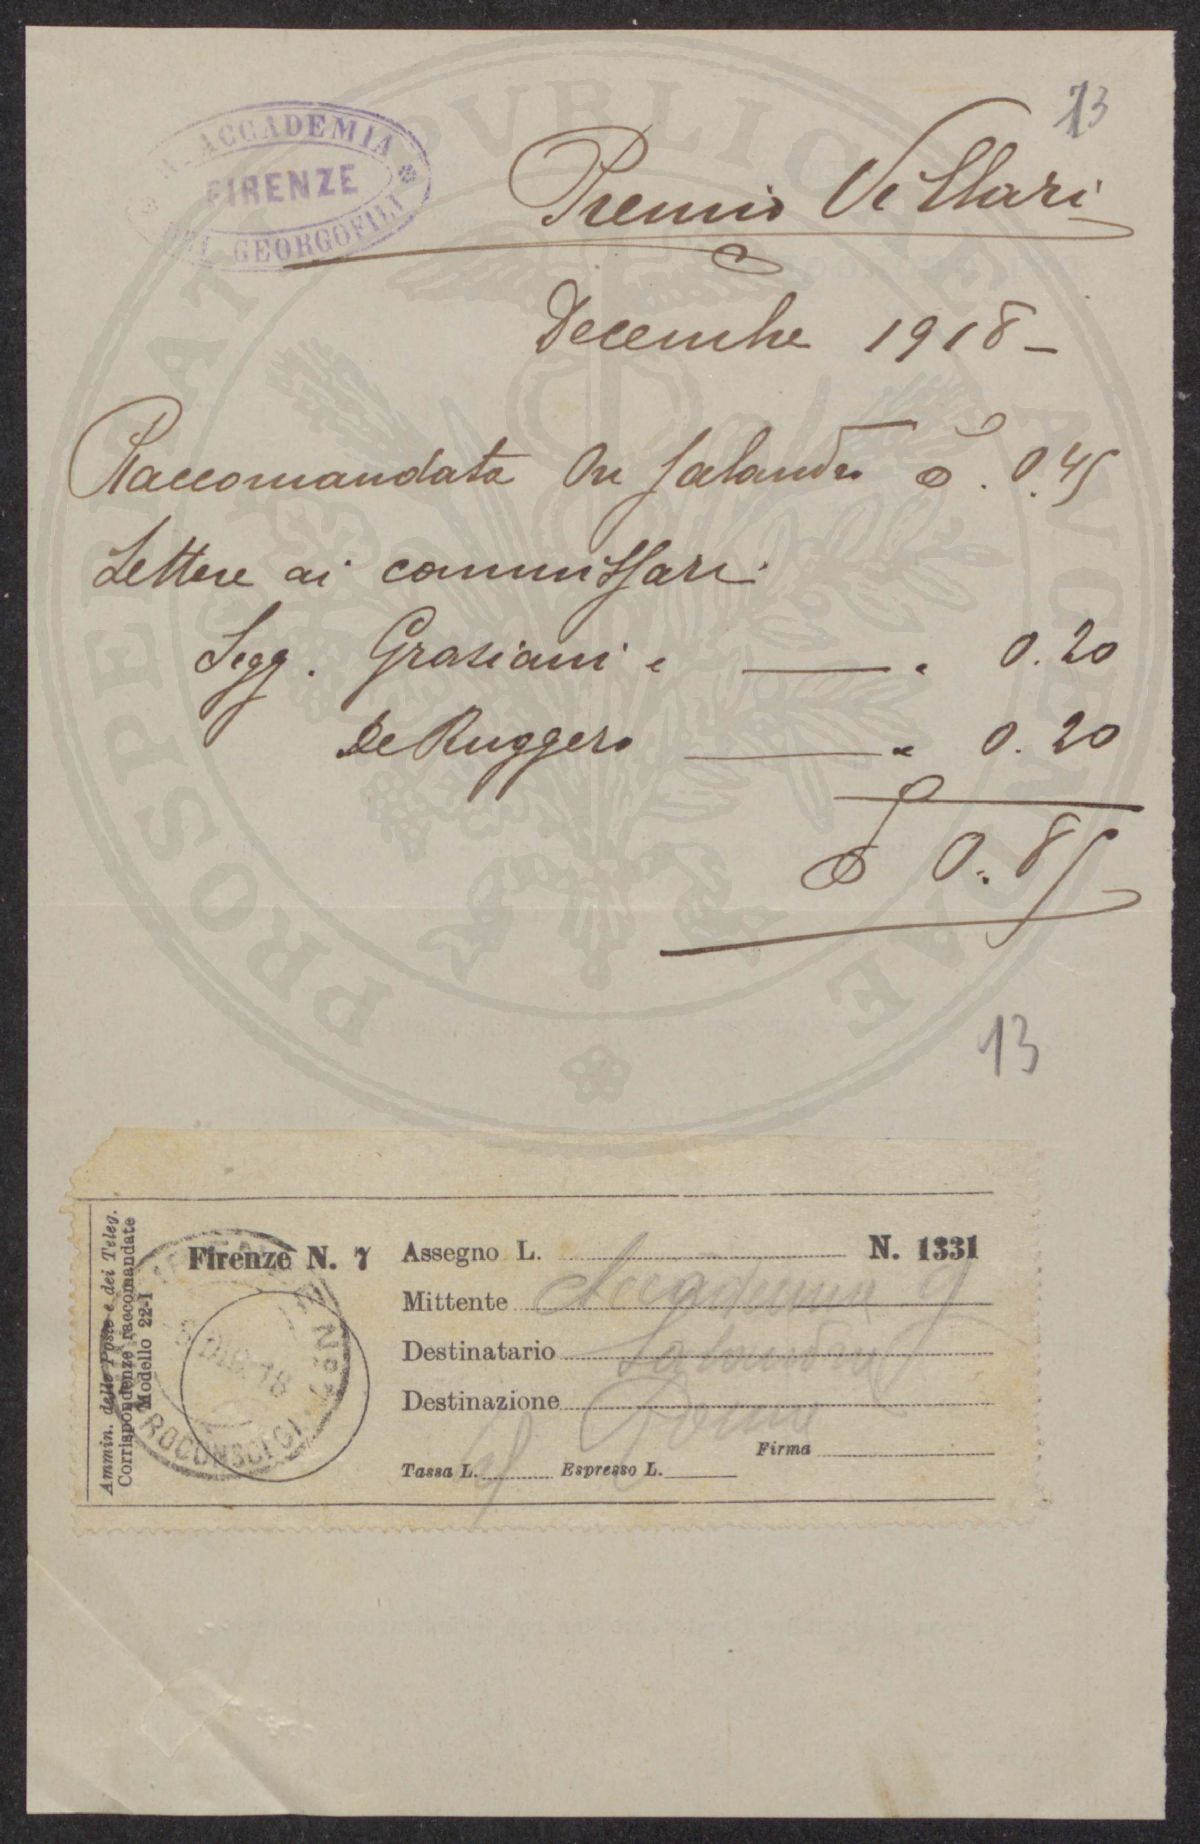 13
R. ACCADEMIA
FIRENZE
DEI GEORGOFILI
Premio Villari
Decembre 1918 -
Raccomandata On Salandra £. 0.45
Lettere ai commissari:
Segg. Graziani e " 0.20
De Ruggero " 0.20
£ 0.85
13
PROSPERITATI PVBLICAE AVGENDAE
Ammin. delle Poste e dei Teleg.
Corrispondenze raccomandate
Modello 22-I
Firenze N. 7 Assegno L. N. 1331
Mittente Accademia G
Destinatario Salandra
Destinazione Roma
Firma
Tassa L. 45 Espresso L.
DIC. 18
N°7